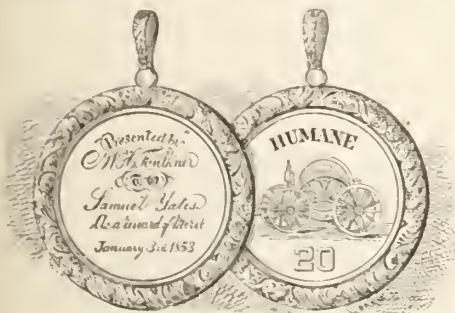 Presented by
W. H. Faulkner
TO
Samuel Yates
As a reward of Merit
January 3rd 1853
HUMANE
20